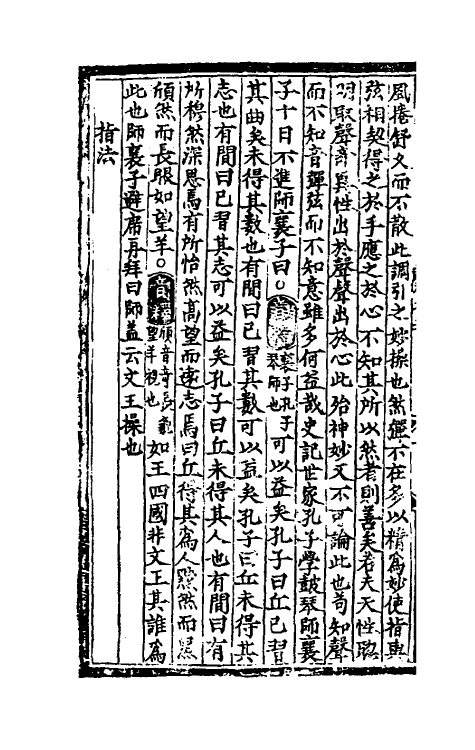 風捲舒久而不散此調引之妙操也然彈不在多以精為妙使指與
弦相契得之於手應之於心不知其所以然者則善矣若夫天性聰
明取聲奇異性出於聲聲出於心此殆神妙又不可論此也苟知聲
而不知音彈弦而不知意雖多何益哉史記世家孔子學鼓琴師襄
子十日不進師襄子曰○音釋襄子孔子琴師也可以益矣孔子曰丘已習
其曲矣未得其數也有間曰已習其數可以益矣孔子曰丘未得其
志也有間曰已習其志可以益矣孔子曰丘未得其人也有間曰有
所穆然深思焉有所怡然高望而遠志焉曰丘得其為人黯然而黑
頎然而長眼如望羊○音釋頎音奇長貌望羊視也如王四國非文王其誰為
此也師襄子避席再拜曰師蓋云文王操也
指法